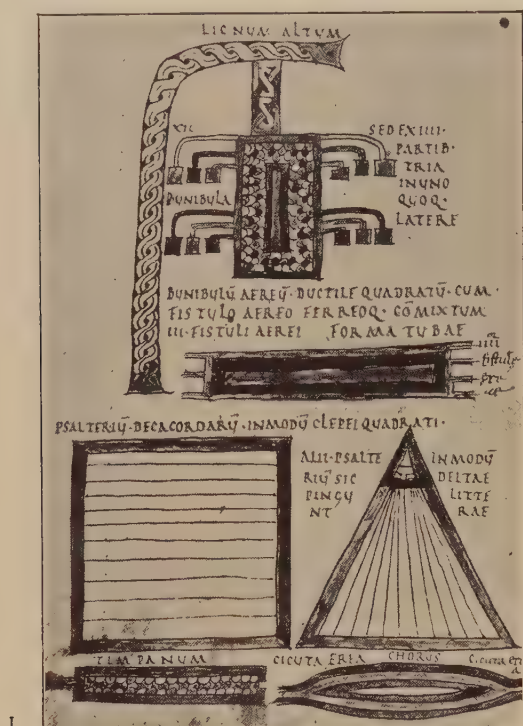 LIGNUM ALTUM
XII
SED EX IIII·
PARTIB·
TRIA
IN UNO
QUOQ·
LATERE
BUNIBULA
BUNIBULŪ AEREŪ· DUCTILE QUADRATŪ· CUM·
FISTULO AEREO FERREOQ· CŌMIXTUM
III· FISTULI AEREI FORMA TUBAE
IIII
fistule
PSALTERIŪ· DECACORDARŪ· IN MODŪ CLEPEI QUADRATI·
ALII· PSALTE
RIŪ SIC
PINGU
NT
IN MODŪ
DELTAE
LITTE
RAE
TIMPANUM
CICUTA ERIA
CHORUS
Cicuta
I